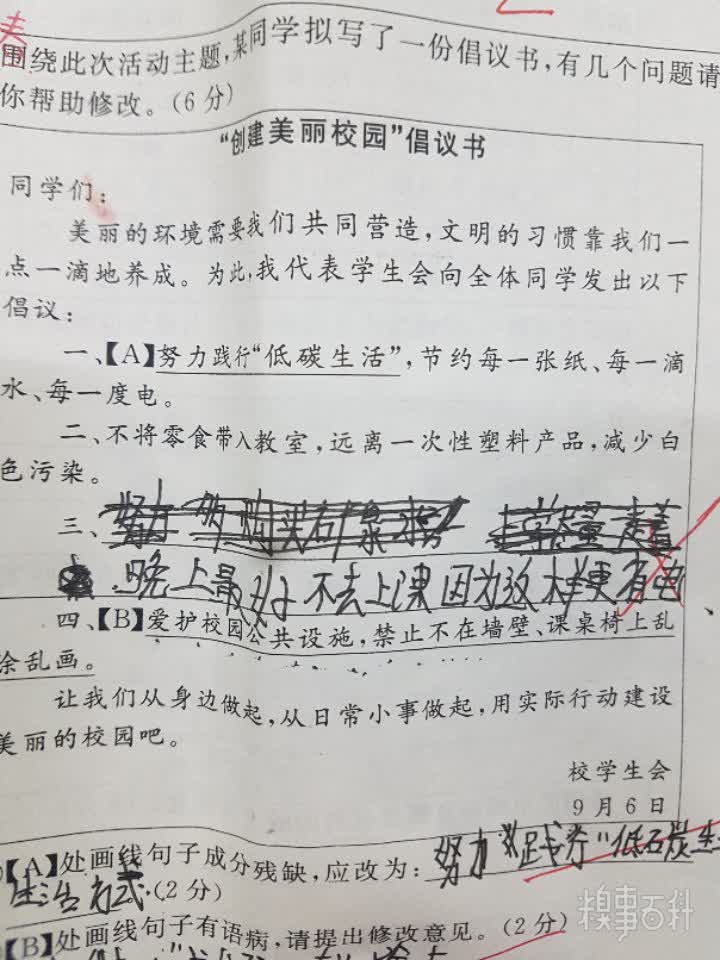 围绕此次活动主题,某同学拟写了一份倡议书,有几个问题请
你帮助修改。(6分)
“创建美丽校园”倡议书
同学们:
美丽的环境需要我们共同营造,文明的习惯靠我们一
点一滴地养成。为此,我代表学生会向全体同学发出以下
倡议:
一、【A】努力践行“低碳生活”,节约每一张纸、每一滴
水、每一度电。
二、不将零食带入教室,远离一次性塑料产品,减少白
色污染。
三、
晚上最好不去上课因为这样更省电
四、【B】爱护校园公共设施,禁止不在墙壁、课桌椅上乱
涂乱画。
让我们从身边做起,从日常小事做起,用实际行动建设
美丽的校园吧。
校学生会
9月6日
【A】处画线句子成分残缺,应改为:努力践行“低碳生
生活方式.(2分)
【B】处画线句子有语病,请提出修改意见。(2分)
糗事百科